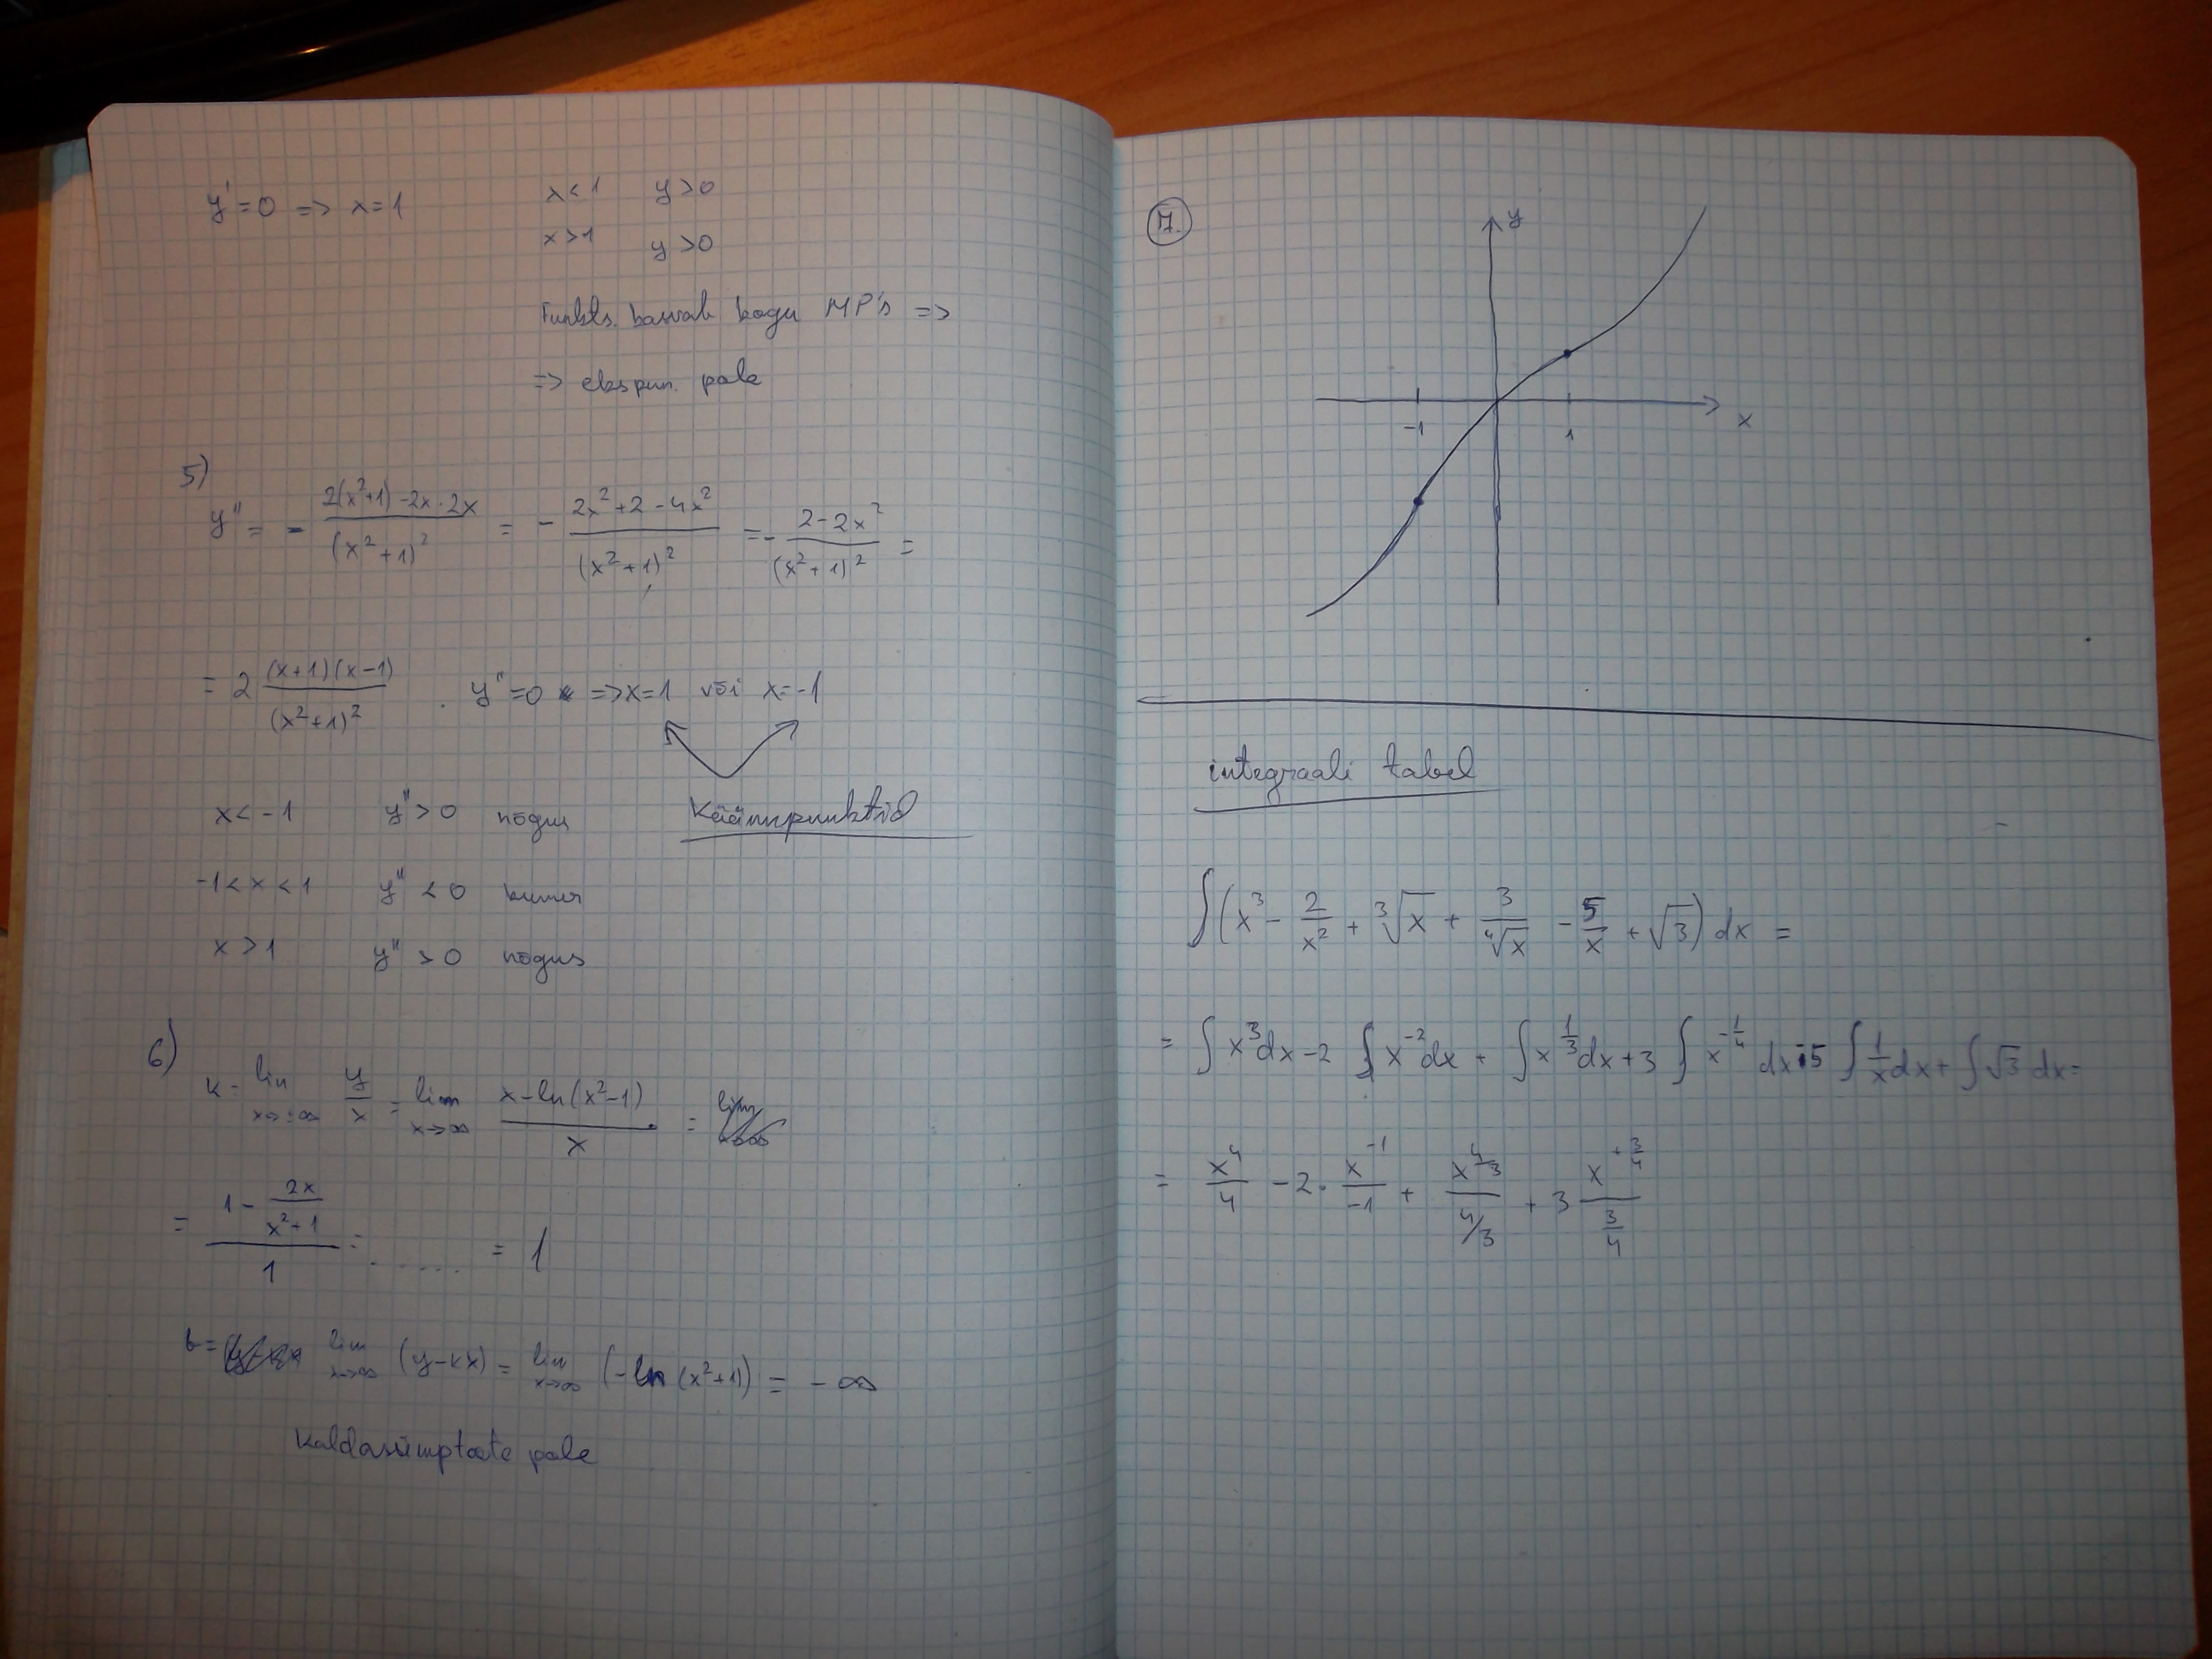 y' = 0 => x = 1   x < 1   y > 0
x > 1   y > 0
Funkts. kasvab kogu MP's =>
=> ekspun. pole
5)
y'' = - (2(x²+1) - 2x·2x)/(x²+1)² = - (2x²+2-4x²)/(x²+1)² = - (2-2x²)/(x²+1)² =
= 2 (x+1)(x-1)/(x²+1)² . y'' = 0 => x = 1 või x = -1
x < -1   y'' > 0   nõgus   Käänupunktid
-1 < x < 1   y'' < 0   kumer
x > 1   y'' > 0   nõgus
6)
k = lim x→±∞ y/x = lim x→∞ (x - ln(x²-1))/x =
= (1 - 2x/(x²+1))/1 = ..... = 1
b = lim x→∞ (y-kx) = lim x→∞ (-ln(x²+1)) = -∞
Kaldasümptoote pole
7.
y
-1   1   x
integraali tabel
∫(x³ - 2/x² + ³√x + 3/⁴√x - 5/x + √3) dx =
= ∫x³dx - 2 ∫x⁻²dx + ∫x^(1/3)dx + 3 ∫x^(-1/4) dx - 5 ∫1/x dx + ∫√3 dx =
= x⁴/4 - 2 · x⁻¹/-1 + x^(4/3)/(4/3) + 3 x^(+3/4)/(3/4)